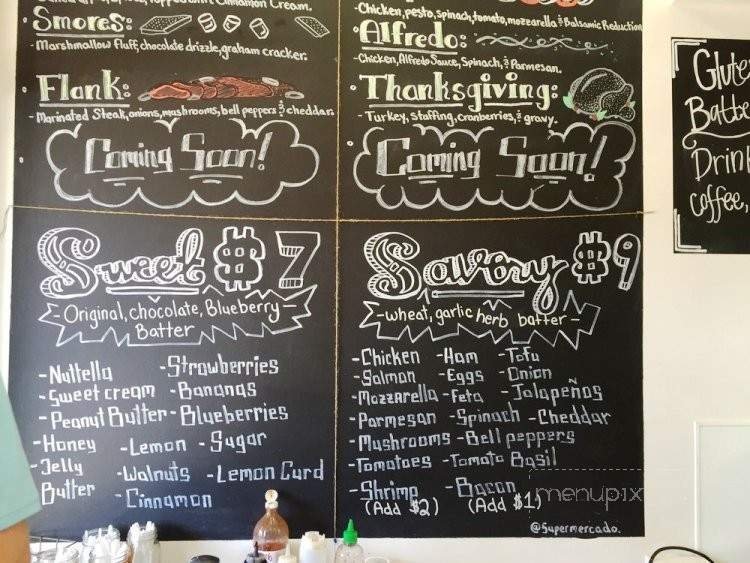 Cinnamon Cream.
Smores:
-Marshmallow Fluff, chocolate drizzle, graham cracker.
Flank:
- Marinated Steak, onions, mushrooms, bell peppers & cheddar.
Coming Soon!
-Chicken, pesto, spinach, tomato, mozzarella & Balsamic Reduction
Alfredo:
-Chicken, Alfredo Sauce, Spinach, & Parmesan.
Thanksgiving:
- Turkey, staffing, cranberries, & gravy.
Coming Soon!
Glute
Batte
Drin
coffee,
Sweet $7
Original, chocolate, Blueberry
Batter
-Nuttella -Strawberries
-Sweet cream -Bananas
-Peanut Butter -Blueberries
-Honey -Lemon -Sugar
-Jelly -Walnuts -Lemon Curd
Butter -Cinnamon
Savory $9
-wheat, garlic herb batter-
-Chicken -Ham -Tofu
-Salmon -Eggs -Onion
-Mozzarella -Feta -Jalapeños
-Parmesan -Spinach -Cheddar
-Mushrooms -Bell peppers
-Tomatoes -Tomato Basil
-Shrimp -Bacon
(Add $2) (Add $1)
menupix
@Supermercado.